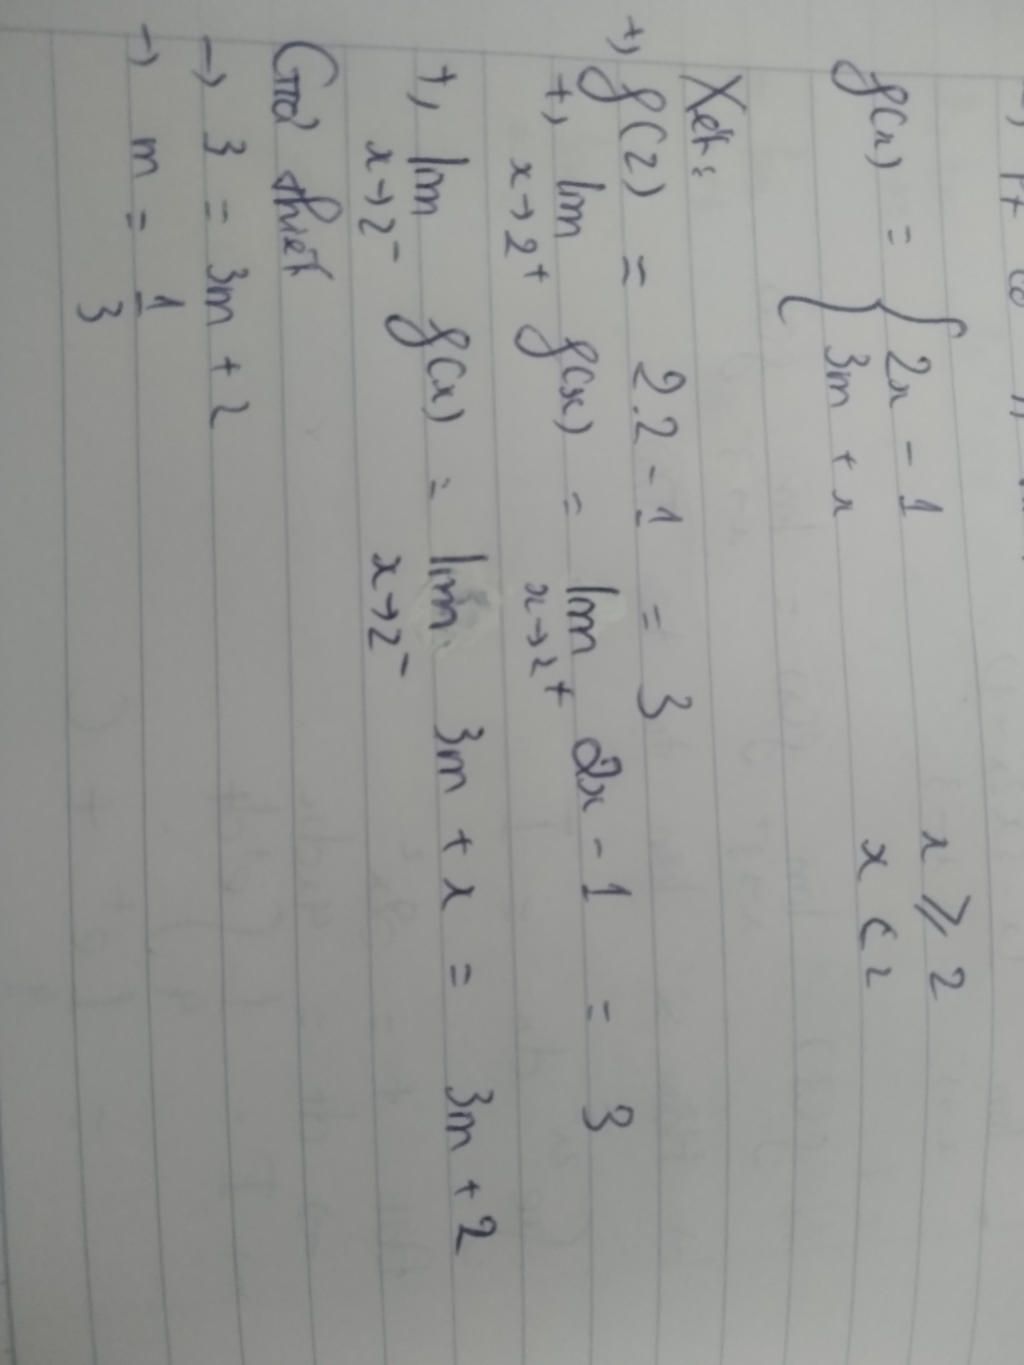 f(x) = { 2x - 1 x ≥ 2
3m + x x < 2
Xét:
+, f(2) = 2.2 - 1 = 3
+, lim x→2⁺ f(x) = lim x→2⁺ 2x - 1 = 3
+, lim x→2⁻ f(x) = lim x→2⁻ 3m + x = 3m + 2
Giả thiết
→ 3 = 3m + 2
→ m = 1/3